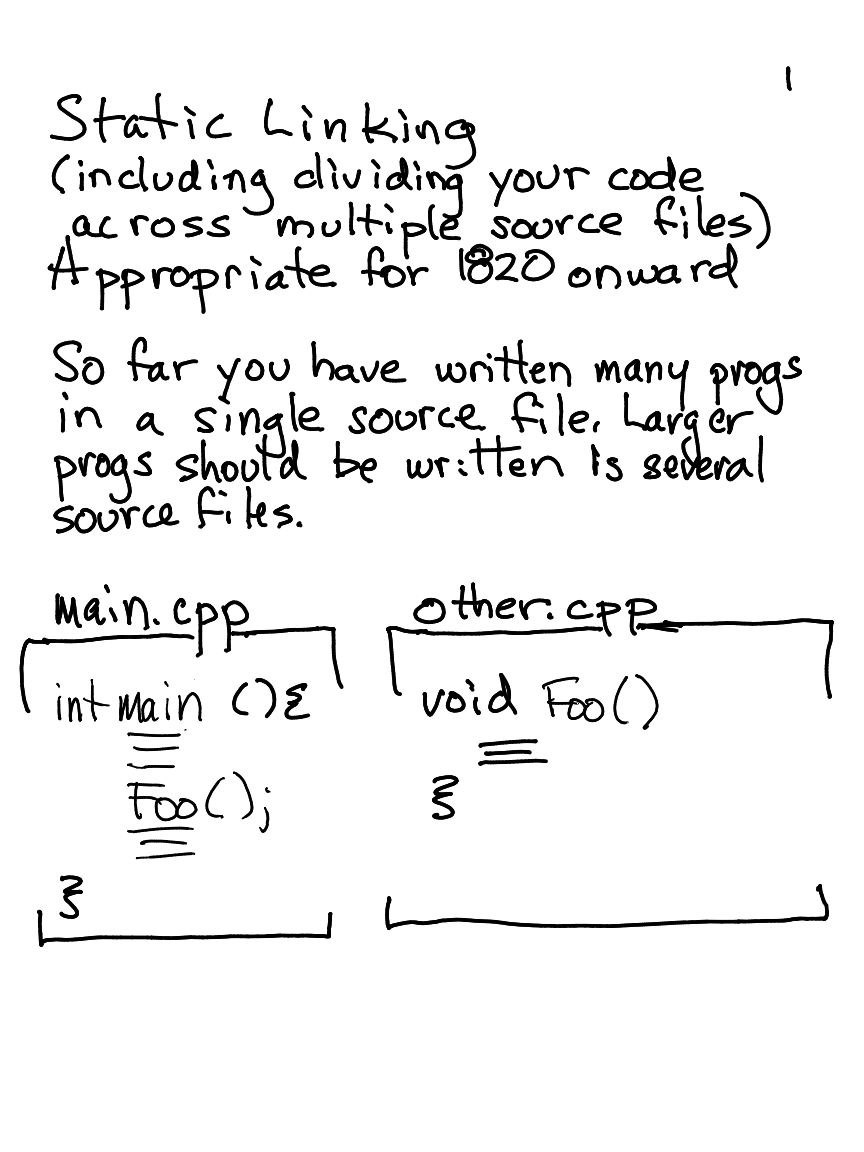 1
Static Linking
(including dividing your code
across multiple source files)
Appropriate for 1820 onward
So far you have written many progs
in a single source file. Larger
progs should be written is several
source files.
main.cpp
other.cpp
int main (){
void Foo()
Foo();
}
}